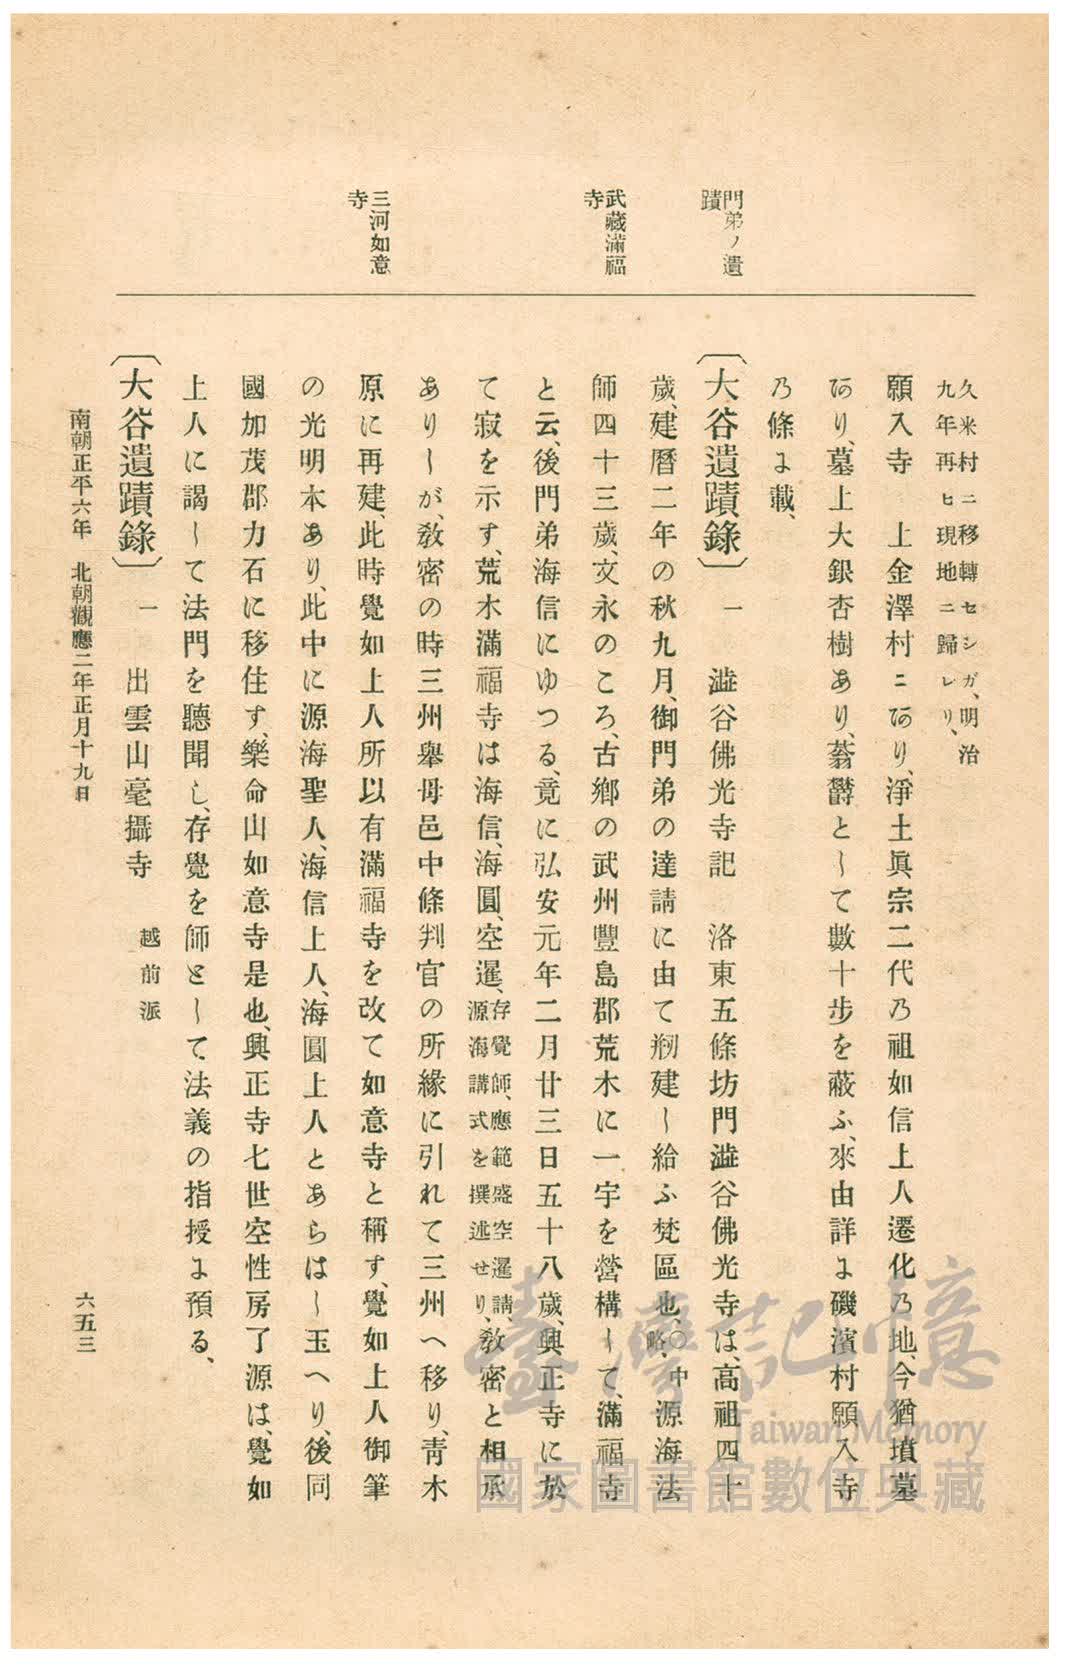 門弟ノ遺
蹟
武藏滿福
寺
三河如意
寺
久米村ニ移轉セシガ、明治
九年再ヒ現地ニ歸レリ、
願入寺　上金澤村ニあり、淨土眞宗二代乃祖如信上人遷化乃地、今猶墳墓
あり、墓上大銀杏樹あり、蓊欝として數十步を蔽ふ、來由詳よ磯濱村願入寺
乃條よ載、
〔大谷遺蹟錄〕　一　澁谷佛光寺記　洛東五條坊門澁谷佛光寺は、高祖四十
歲、建曆二年の秋九月、御門弟の達請に由て剏建し給ふ梵區也、〇中略、源海法
師四十三歲、文永のころ、古鄕の武州豐島郡荒木に一宇を營構して、滿福寺
と云、後門弟海信にゆつる、竟に弘安元年二月廿三日五十八歲、興正寺に於
て寂を示す、荒木滿福寺は海信、海圓、空暹、存覺師、應範盛空暹請、源海講式を撰述せり、敎密と相承
ありしが、敎密の時三州擧母邑中條判官の所緣に引れて三州へ移り、靑木
原に再建、此時覺如上人所以有滿福寺を改て如意寺と稱す、覺如上人御筆
の光明本あり、此中に源海聖人、海信上人、海圓上人とあらはし玉へり、後同
國加茂郡力石に移住す、樂命山如意寺是也、興正寺七世空性房了源は、覺如
上人に謁して法門を聽聞し、存覺を師として法義の指授よ預る、
〔大谷遺蹟錄〕　一　出雲山毫攝寺　越前派
南朝正平六年　北朝觀應二年正月十九日
六五三
臺灣記憶
Taiwan Memory
國家圖書館數位典藏